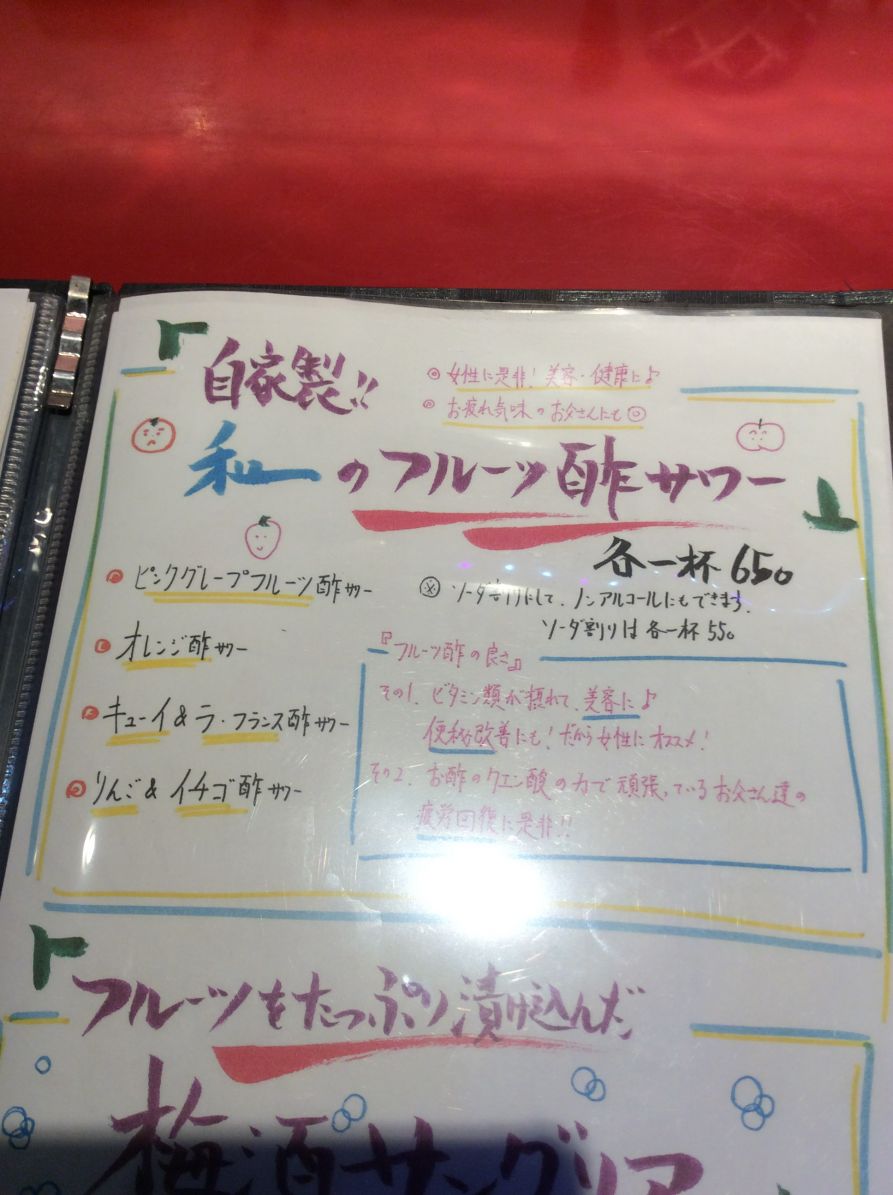 自家製!!
◎ 女性に是非!美容・健康に♪
◎ お疲れ気味のお父さんにも◎
和のフルーツ酢サワー
各一杯 650
ピンクグレープフルーツ酢サワー
※ ソーダ割りにして、ノンアルコールにもできます。
ソーダ割りは各一杯 550
オレンジ酢サワー
キューイ&ラ・フランス酢サワー
りんご&イチゴ酢サワー
『フルーツ酢の良さ』
その1. ビタミン類が摂れて、美容に♪
便秘改善にも!だから女性にオススメ!
その2. お酢のクエン酸の力で頑張っているお父さん達の
疲労回復に是非!!
フルーツをたっぷり漬け込んだ
梅酒サングリア